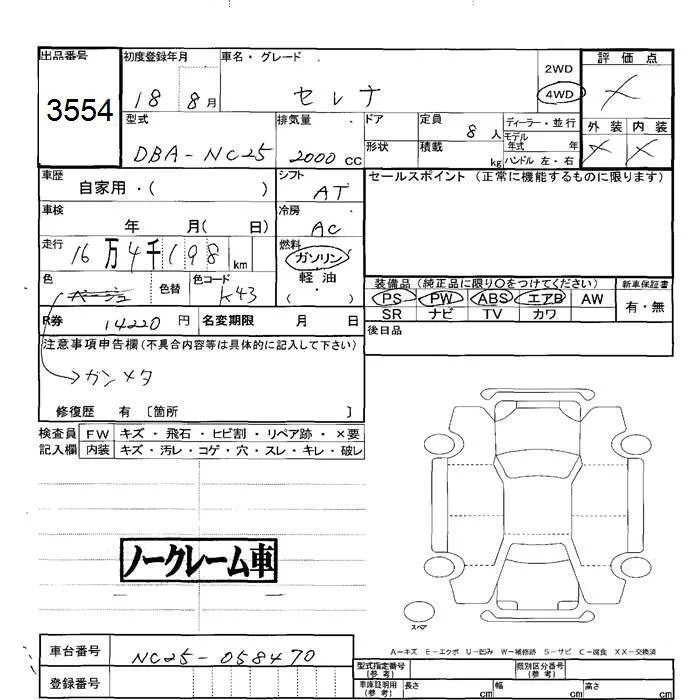 出品番号 初度登録年月 車名・グレード 2WD 評価点
3554 18 8月 セレナ 4WD ×
型式 排気量 ドア 定員 8人 ディーラー・並行 外装 内装
DBA-NC25 2000 CC 形状 積載 kg モデル年式 年 × ×
ハンドル 左・右
車歴 自家用・( ) シフト AT セールスポイント (正常に機能するものに限ります)
車検 年 月( 日) 冷房 AC
走行 16万4千198 km 燃料 ガソリン
軽油
色 ベージュ 色替 色コード K43 ・( )
装備品 (純正品に限り○をつけてください) 新車保証書
PS PW ABS エアB AW 有・無
SR ナビ TV カワ
R券 14220 円 名変期限 月 日 後日品
注意事項申告欄 (不具合内容等は具体的に記入して下さい)
ガンメタ
修復歴 有 〔箇所 〕
検査員 FW キズ・飛石・ヒビ割・リペア跡・×要
記入欄 内装 キズ・汚レ・コゲ・穴・スレ・キレ・破レ
ノークレーム車
スペア
A-キズ E-エクボ U-凹み W-補修跡 S-サビ C-腐食 XX-交換済
車台番号 NC25-058470
型式指定番号 (参考) 類別区分番号 (参考)
登録番号 車庫証明用 (参考) 長さ cm 幅 cm 高さ cm